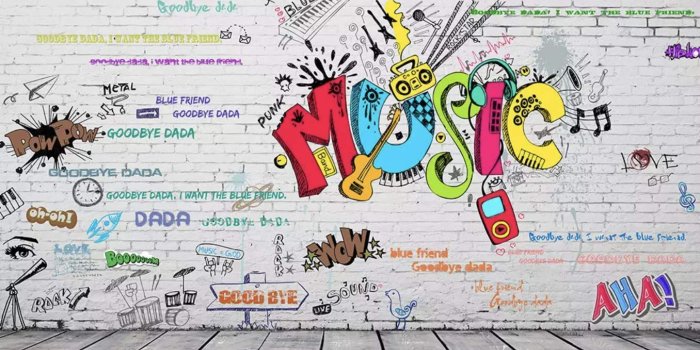 Goodbye dada
GOODBYE DADA! I WANT THE BLUE FRIEND.
GOODBYE DADA, I WANT THE BLUE FRIEND
goodbye dada, i want the blue friend.
BLUES
METAL
BLUE FRIEND
GOODBYE DADA
PUNK
MUSIC
Band
POW POW
GOODBYE DADA
LOVE
GOODBYE DADA
GOODBYE DADA, I WANT THE BLUE FRIEND.
oh-oh!
DADA
GOODBYE DADA
Goodbye dada, i want the blue friend.
LOVE
MUSIC
Booooooom
ROCK
WOW
blue friend
Goodbye dada
BLUE FRIEND
GOODBYE DADA
GOODBYE DADA
ROCK
GOOD BYE
LIVE
SOUND
blue friend
Goodbye dada
AHA!